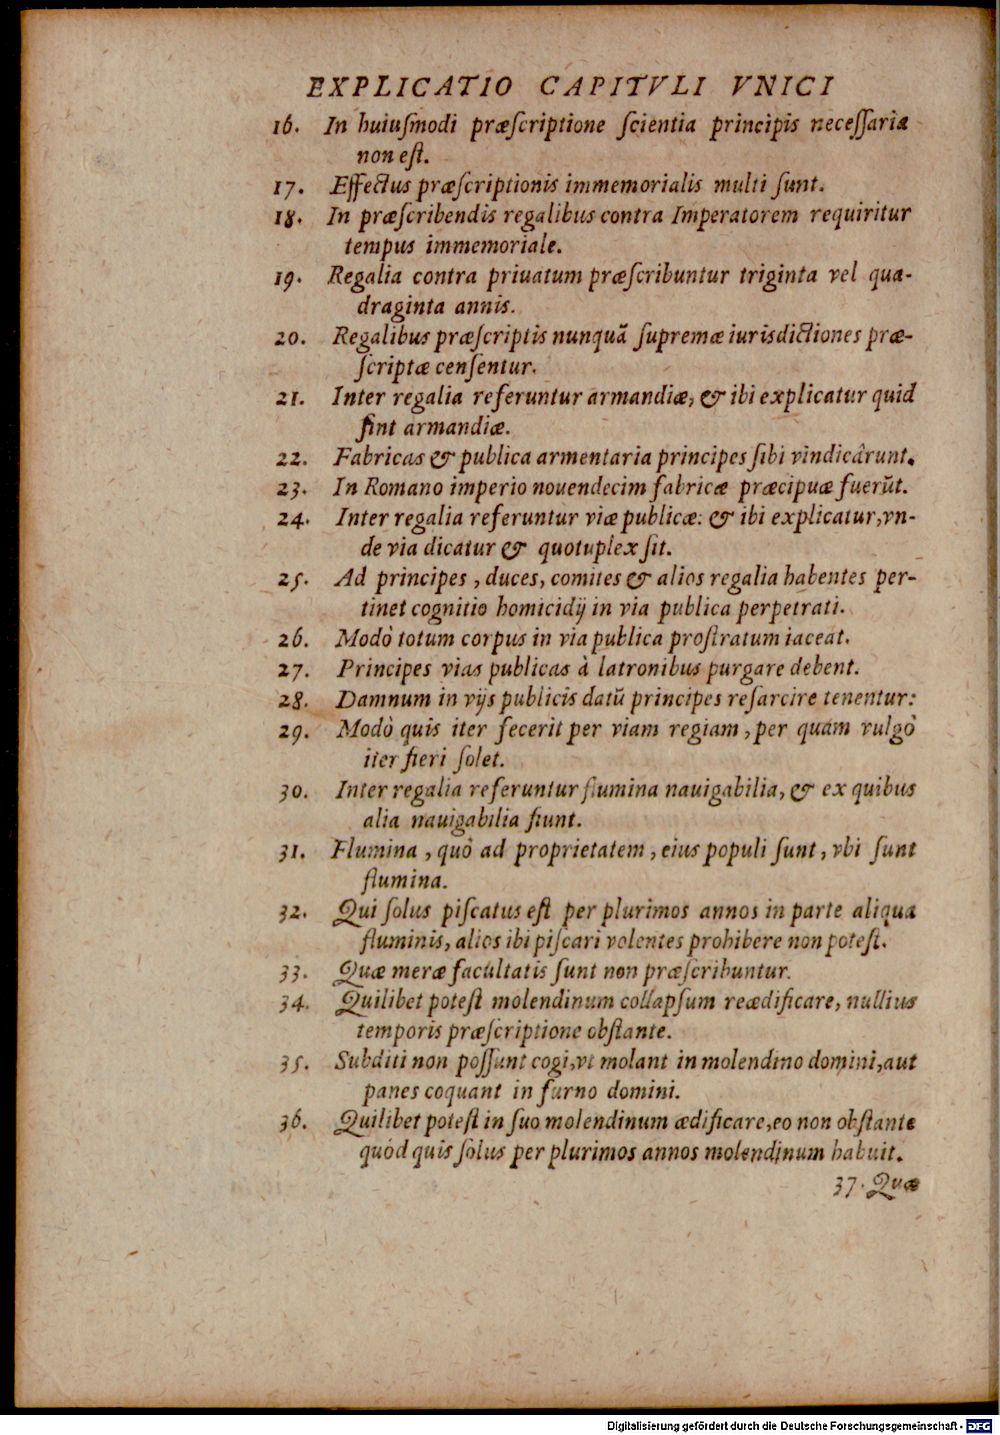 EXPLICATIO CAPITVLI VNICI
16. In huiuſmodi præſcriptione ſcientia principis neceſſaria
non eſt.
17. Effectus præſcriptionis immemorialis multi ſunt.
18. In præſcribendis regalibus contra Imperatorem requiritur
tempus immemoriale.
19. Regalia contra priuatum præſcribuntur triginta vel qua-
draginta annis.
20. Regalibus præſcriptis nunquã ſupremæ iurisdictiones præ-
ſcriptæ cenſentur.
21. Inter regalia referuntur armandiæ, & ibi explicatur quid
ſint armandiæ.
22. Fabricas & publica armentaria principes ſibi vindicârunt.
23. In Romano imperio nouendecim fabricæ præcipuæ fuerũt.
24. Inter regalia referuntur viæ publicæ: & ibi explicatur, vn-
de via dicatur & quotuplex ſit.
25. Ad principes, duces, comites & alios regalia habentes per-
tinet cognitio homicidij in via publica perpetrati.
26. Modò totum corpus in via publica proſtratum iaceat.
27. Principes vias publicas à latronibus purgare debent.
28. Damnum in vijs publicis datũ principes reſarcire tenentur:
29. Modò quis iter fecerit per viam regiam, per quam vulgò
iter fieri ſolet.
30. Inter regalia referuntur flumina nauigabilia, & ex quibus
alia nauigabilia fiunt.
31. Flumina, quò ad proprietatem, eius populi ſunt, vbi ſunt
flumina.
32. Qui ſolus piſcatus eſt per plurimos annos in parte aliqua
fluminis, alios ibi piſcari volentes prohibere non poteſt.
33. Quæ meræ facultatis ſunt non præſcribuntur.
34. Quilibet poteſt molendinum collapſum reædificare, nullius
temporis præſcriptione obſtante.
35. Subditi non poſſunt cogi, vt molant in molendino domini, aut
panes coquant in furno domini.
36. Quilibet poteſt in ſuo molendinum ædificare, eo non obſtante
quòd quis ſolus per plurimos annos molendinum habuit.
37. Quæ
Digitalisierung gefördert durch die Deutsche Forschungsgemeinschaft - DFG